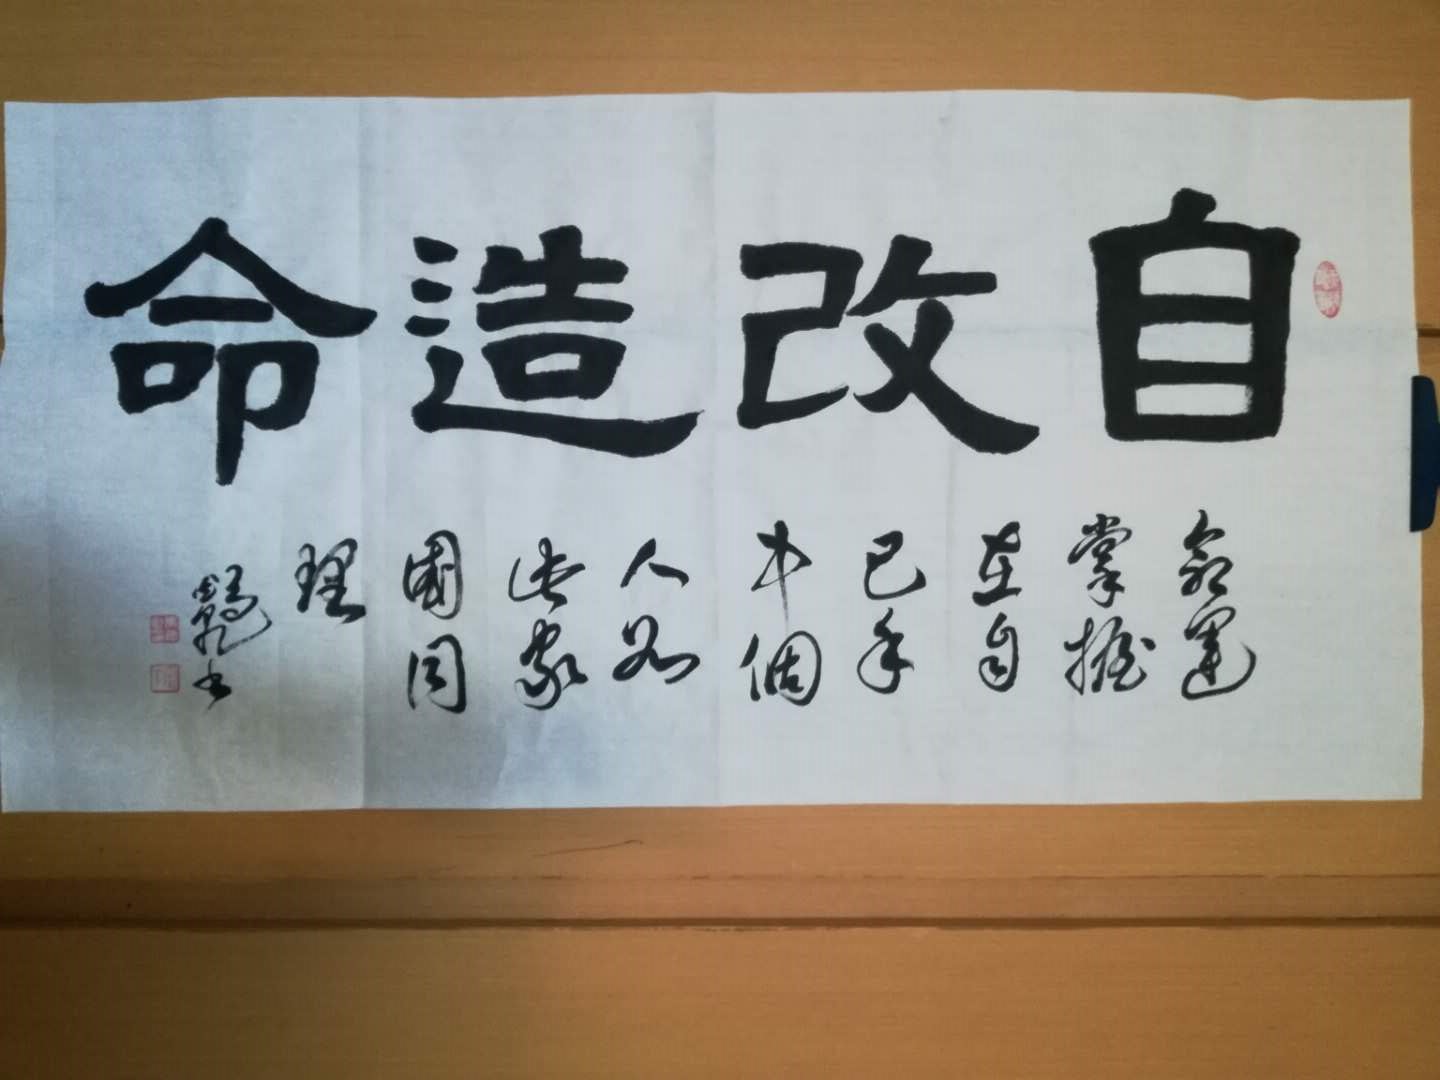 自改造命
命運
掌握
在自
己手
中個
人如
此家
國同
理
书